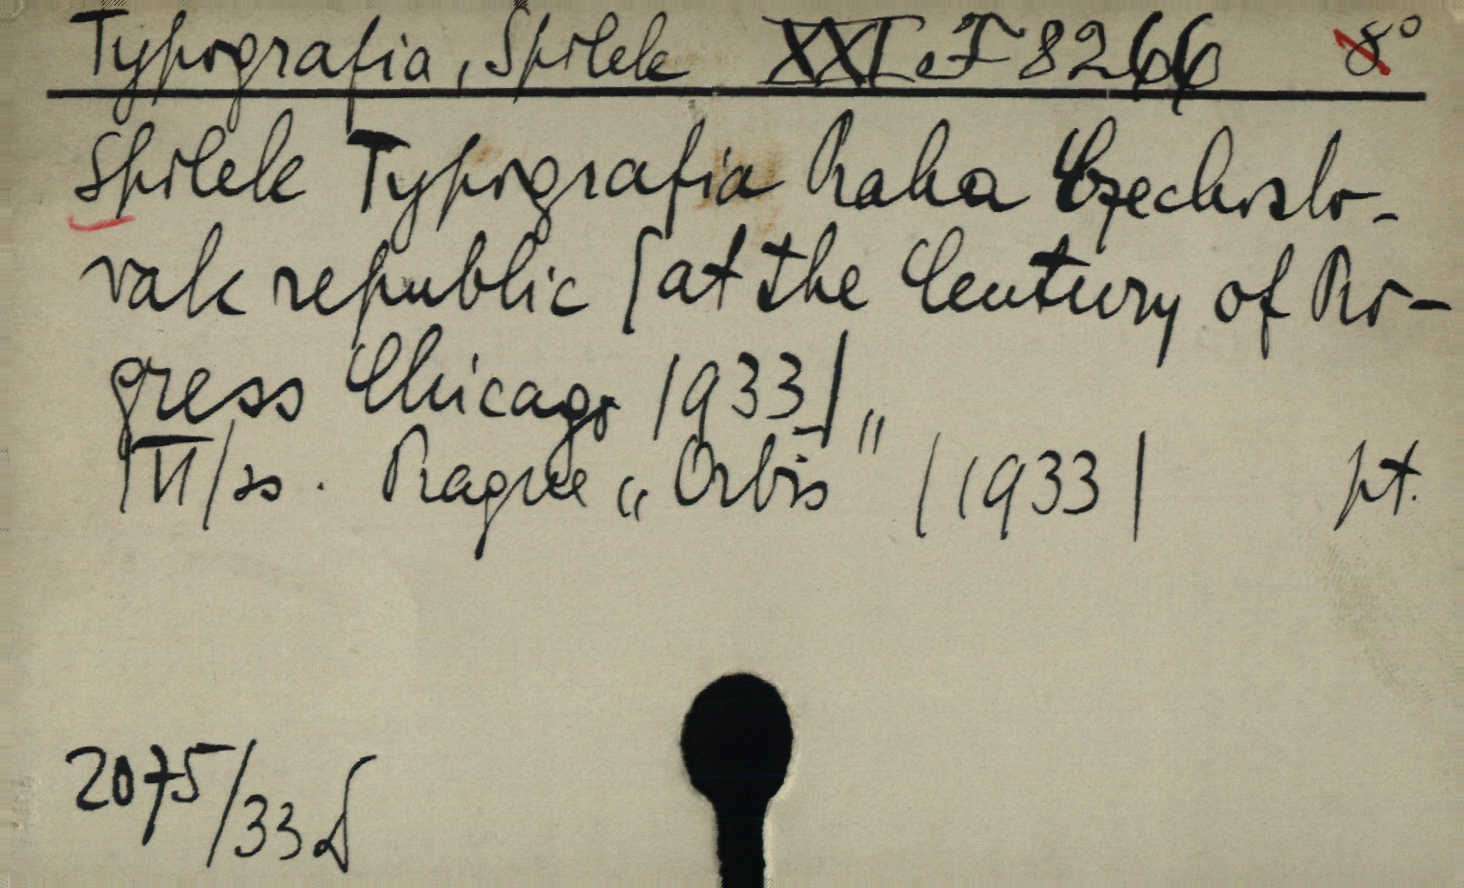 Typografia, Spolek XXI.F 8266 8°
Spolek Typografia Praha Czechoslo-
vak republic [at the Century of Pro-
gress Chicago 1933] „
|VI/ss. Prague „Orbis" |1933| pt.
2075/33